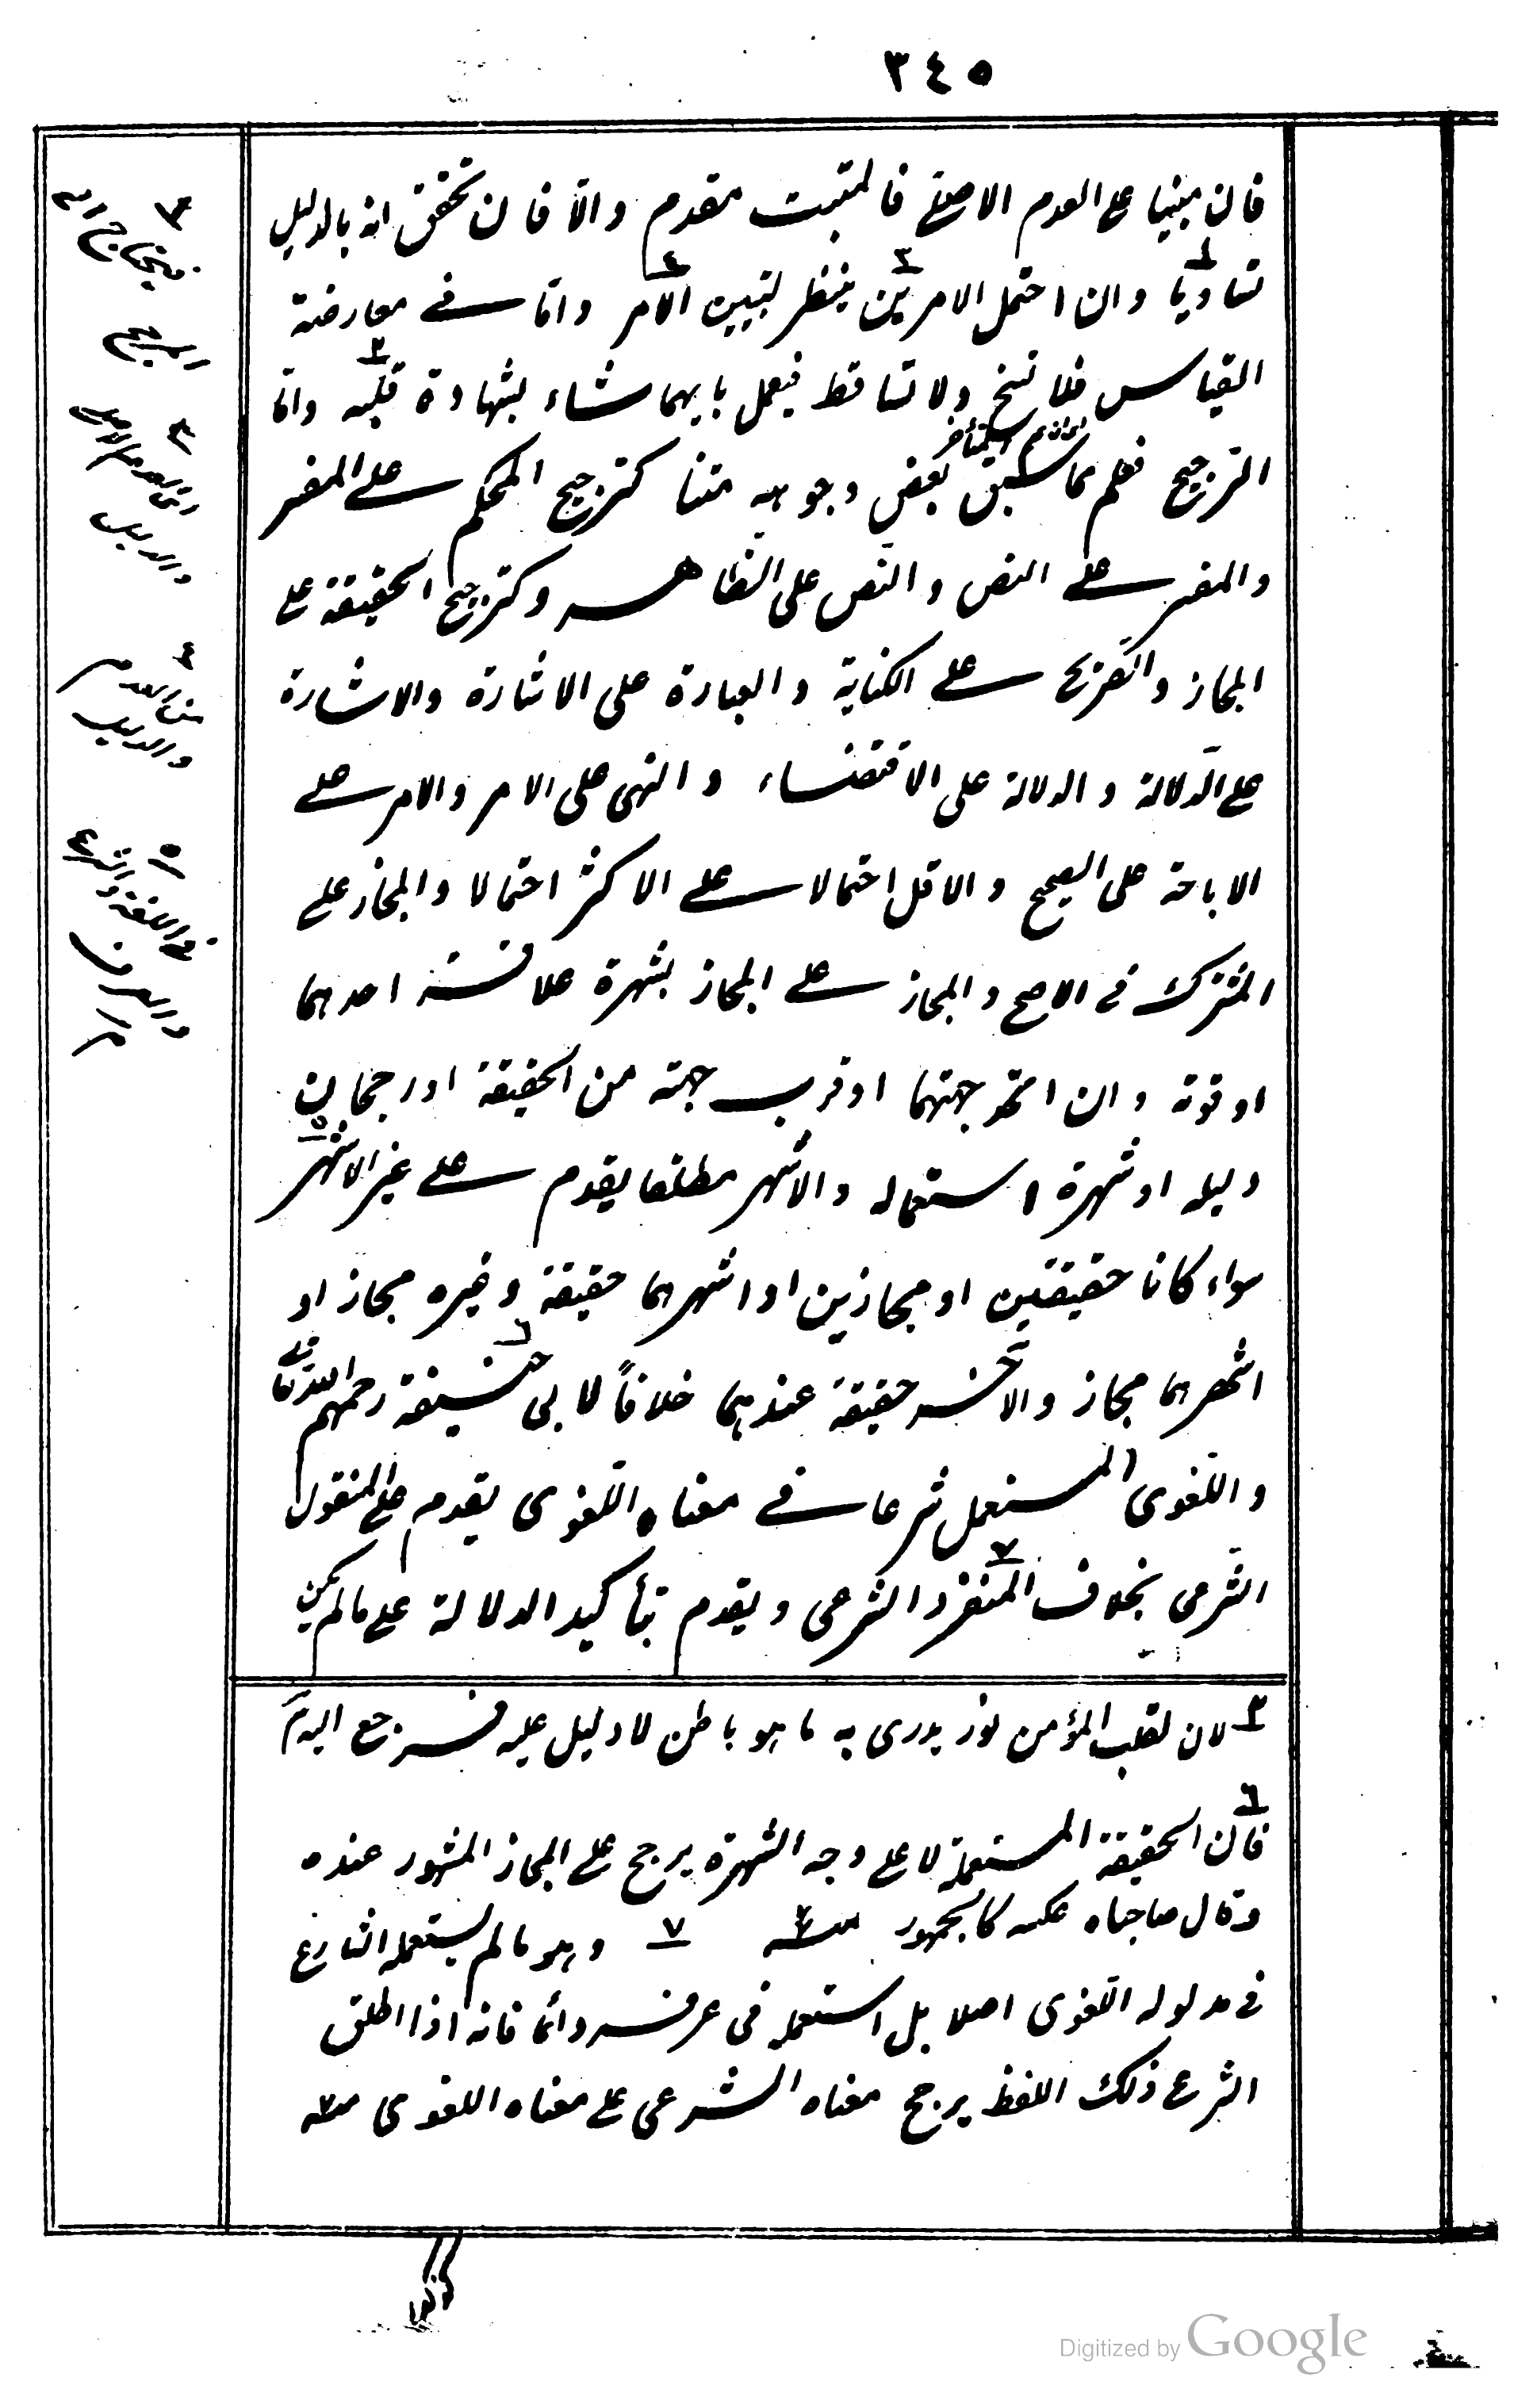 ٣٤٥
فان مبنيا على العدم الاصلى فالمثبت مقدم والّا فان تحقق انه بالدليل
تساويا وان احتمل الامرين ينظر ليتبين الامر وامّا فى معارضة
القياس فلا نسخ ولا تساقط فيعمل بايهما شاء بشهادة قلبه وامّا
الترجيح فعلم مما سبق بعض وجوهه متنا كترجيح المحكم على المفسر
والمفسر على النص والنّص على الظاهر وكترجيح الحقيقة على
المجاز والتصريح على الكناية والعبارة على الاشارة والاشارة
على الدّلالة والدلالة على الاقتضاء والنهى على الامر والامر على
الاباحة على الصحيح والاقل احتمالا على الاكثر احتمالا والمجاز على
المشترك فى الاصح والمجاز على المجاز بشهرة علاقته احدهما
او قوته وان اتحد جهتهما او قرب جهته من الحقيقة او رجحان
دليله او شهرة استعماله والاشهر مطلقا يقدم على غير الاشهر
سواء كانا حقيقتين او مجازين او اشهرهما حقيقة وغيره مجاز او
اشهرهما مجاز والاخر حقيقة عندهما خلافاً لابى حنيفة رحمهم الله تعالى
واللّغوى المستعمل شرعا فى معناه اللّغوى يقدم على المنقول
الشّرعى بخلاف المنفرد الشّرعى ويقدم بتأكيد الدلالة على ما لم يكن
٢ لان لقلب المؤمن نور يدرى به ما هو باطن لا دليل عليه فيرجع اليه
٦
فان الحقيقة المستعملة لا على وجه الشهرة يرجح على المجاز المشهور عنده
وقال صاحباه عكسه كالجمهور منه ٧ وهو ما لم يستعمله الشارع
فى مدلوله اللّغوى اصلا بل استعمله فى عرفه دائما فانه اذا اطلق
الشرع ذلك اللفظ يرجح معناه الشرعى على معناه اللغوى منه
٣
٤
من العدم
والدليل
٥
فى اللغة والشرع
والعرف
Digitized by Google